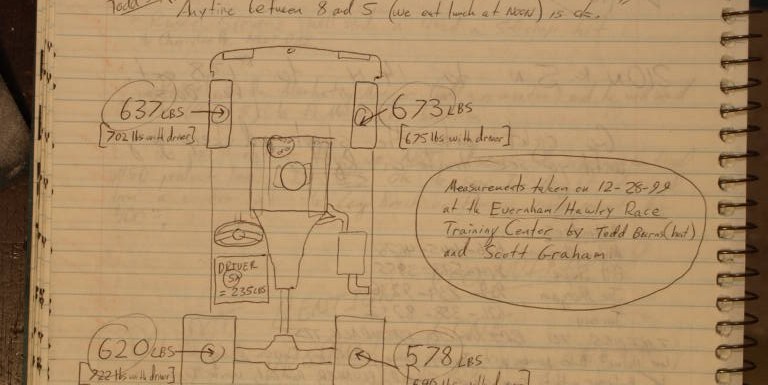 Todd
Anytime between 8 and 5 (we eat lunch at NOON) is ok.
637 LBS
[702 lbs with driver]
673 LBS
[675 lbs with driver]
Measurements taken on 12-28-99
at the Evernham/Hawley Race
Training Center by Todd
and Scott Graham
DRIVER
= 235 LBS
620 LBS
[722 lbs with driver]
578 LBS
lbs with driver]